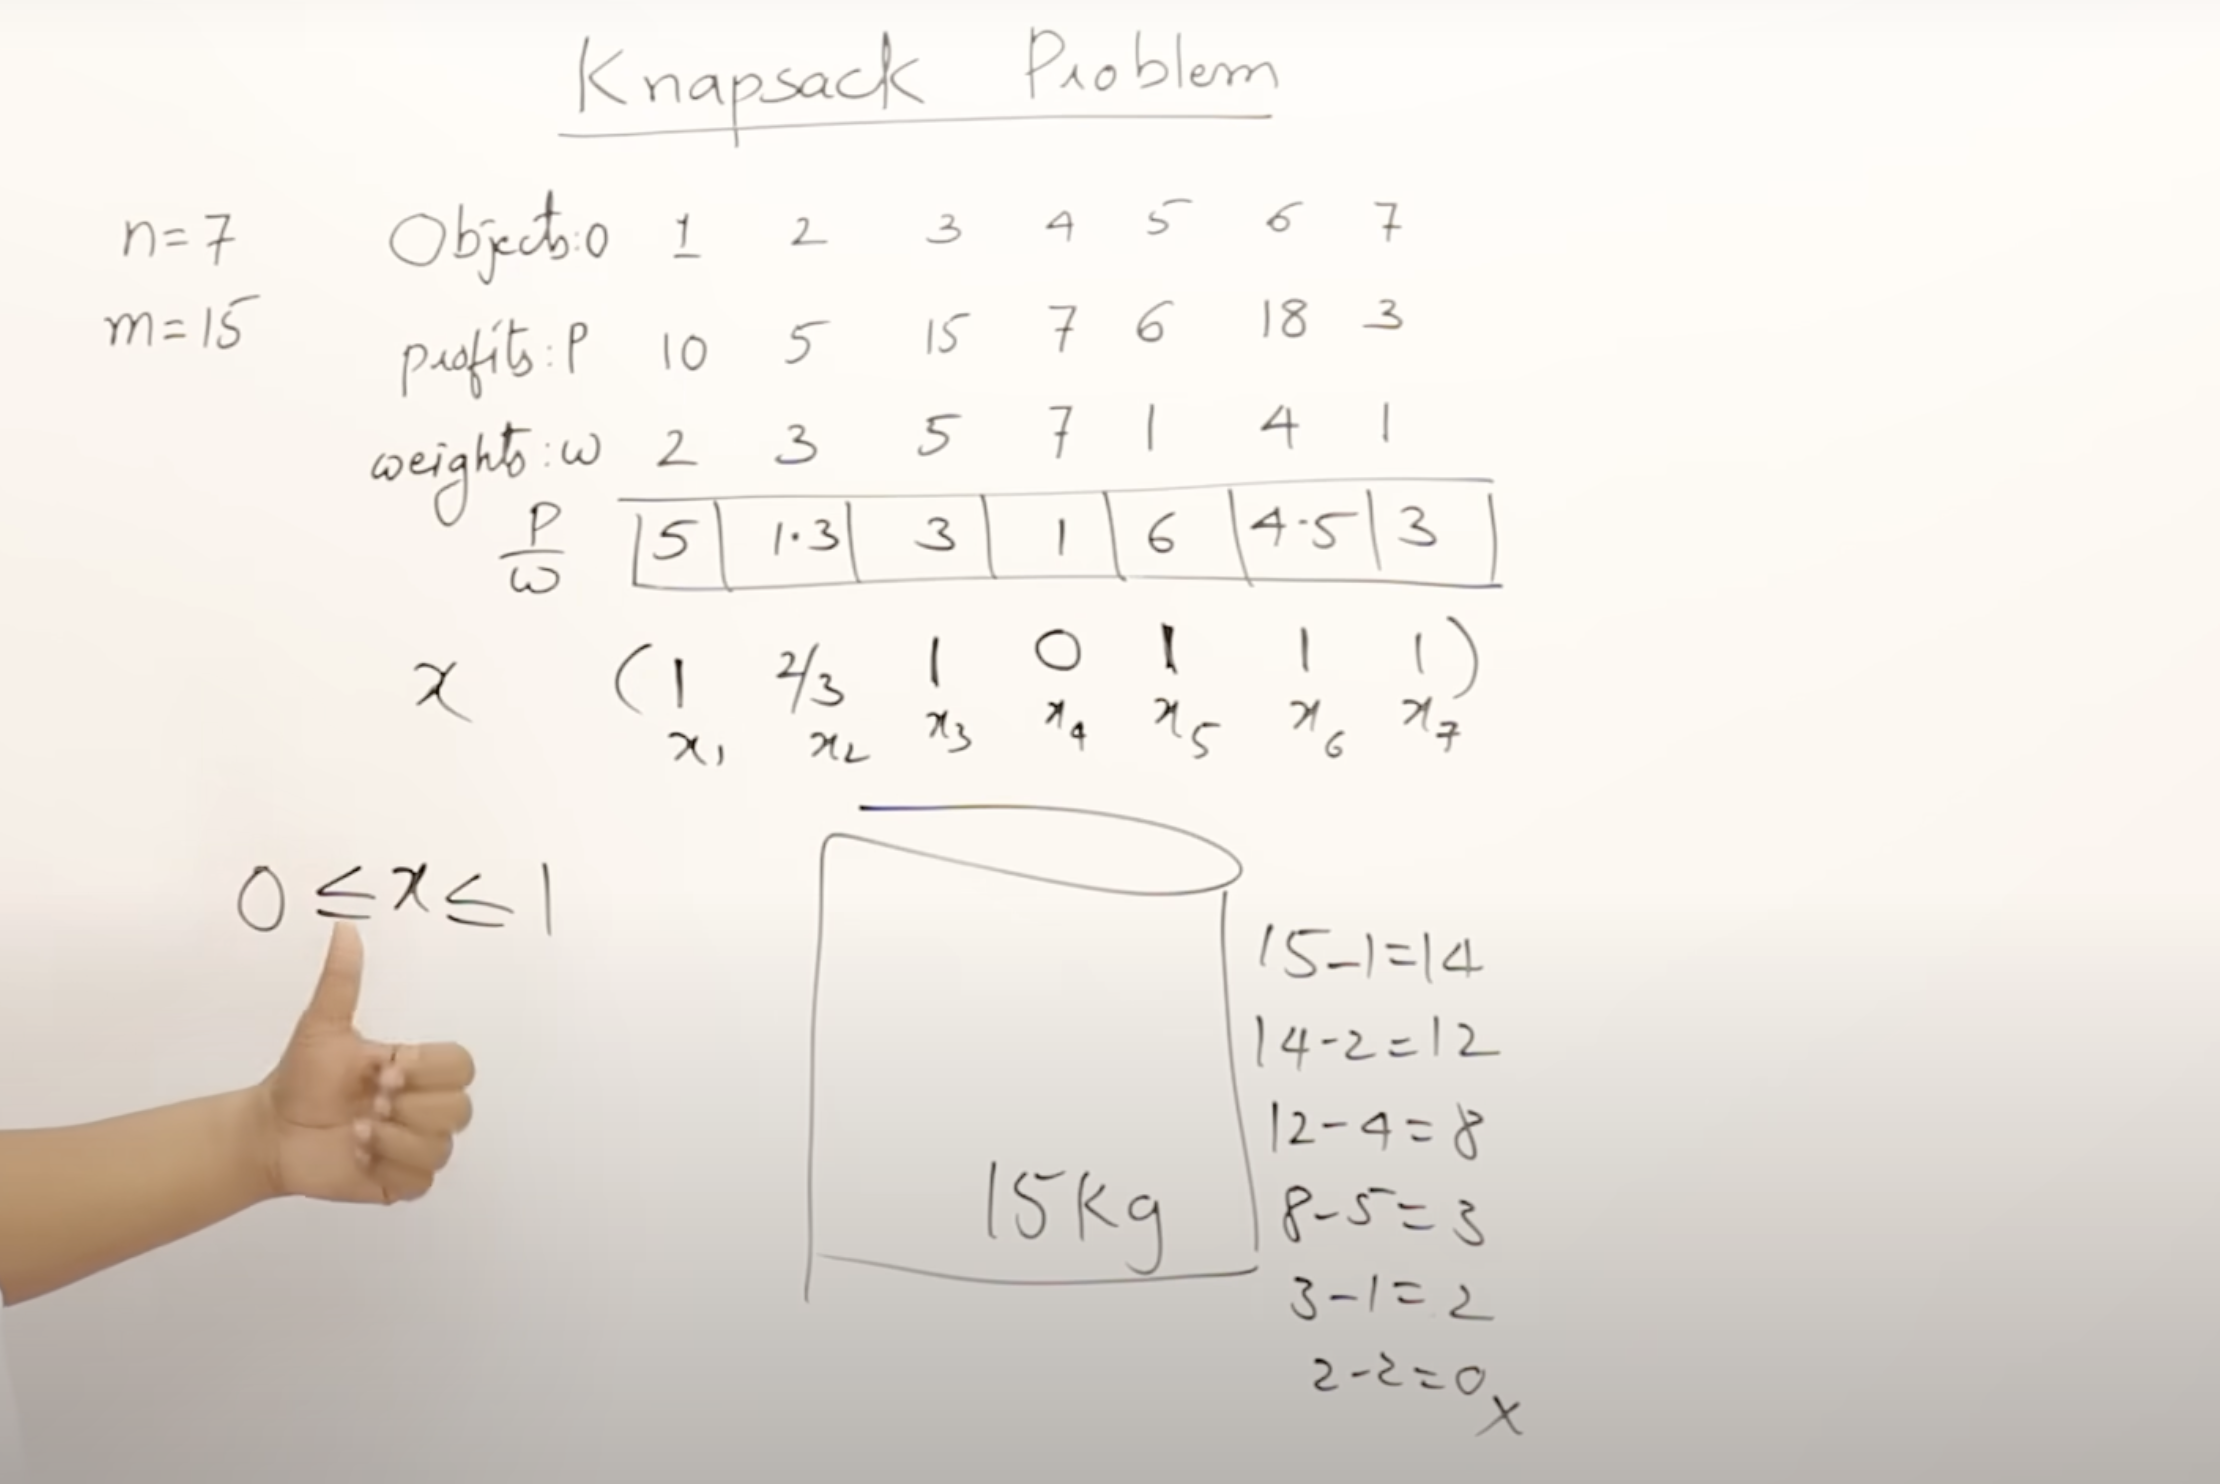 Knapsack Problem
n=7 Objects:O 1 2 3 4 5 6 7
m=15 profits:P 10 5 15 7 6 18 3
weights:w 2 3 5 7 1 4 1
P/w 5 1.3 3 1 6 4.5 3
x (1 2/3 1 0 1 1 1)
x₁ x₂ x₃ x₄ x₅ x₆ x₇
0≤x≤1
15-1=14
14-2=12
12-4=8
8-5=3
15Kg
3-1=2
2-2=0x